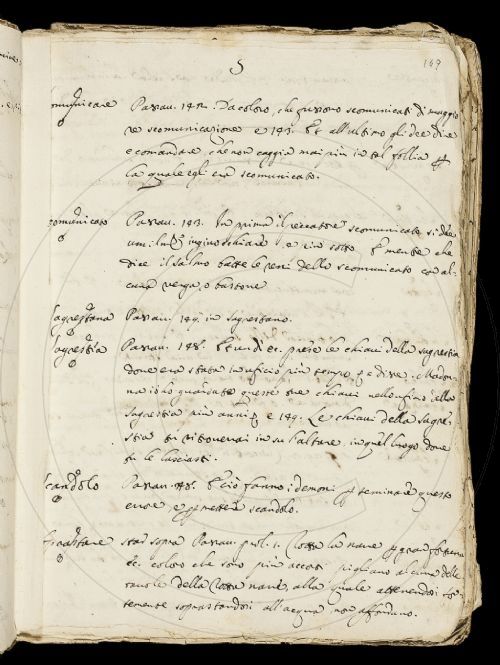 169
S
Scomunicare Passau. 142. Da coloro, che fussono scomunicati di maggio
re scomunicazione e 143. Et all'ultimo gli dee dire
e comandare che non caggia mai più in tal follia p
la quale egli era scomunicato.
scomunicato Passau. 143. In prima il peccatore scomunicato si dee
umilmte inginocchiare e dire
dice il salmo batte le reni dello scomunicato con al
cuna verga, o bastone
Sagrestana Passau. 149. in sagrestano.
Sagrestia Passau. 148. Et undi &c. prese le chiavi della sagrestia
dove era stata in uficio più tempo, e dire. Madon
na io ho guardate queste tue chiavi nello uficio della
sagrestia più anni e 149. Le chiavi della sagre-
stia si ritroverai in su l'altare, in quel luogo dove
tu le lasciasti.
scandolo Passau. E ciò fanno i demoni p seminare questo
errore e p mettere scandolo.
star sopra Passau. prol. 1. Rotta la nave p gran fortuna
&c. coloro che sono più accorti pigliano alcuna delle
tavole della rotta nave, alla quale attenendosi for
temente soprastandosi all'acqua non affondano.